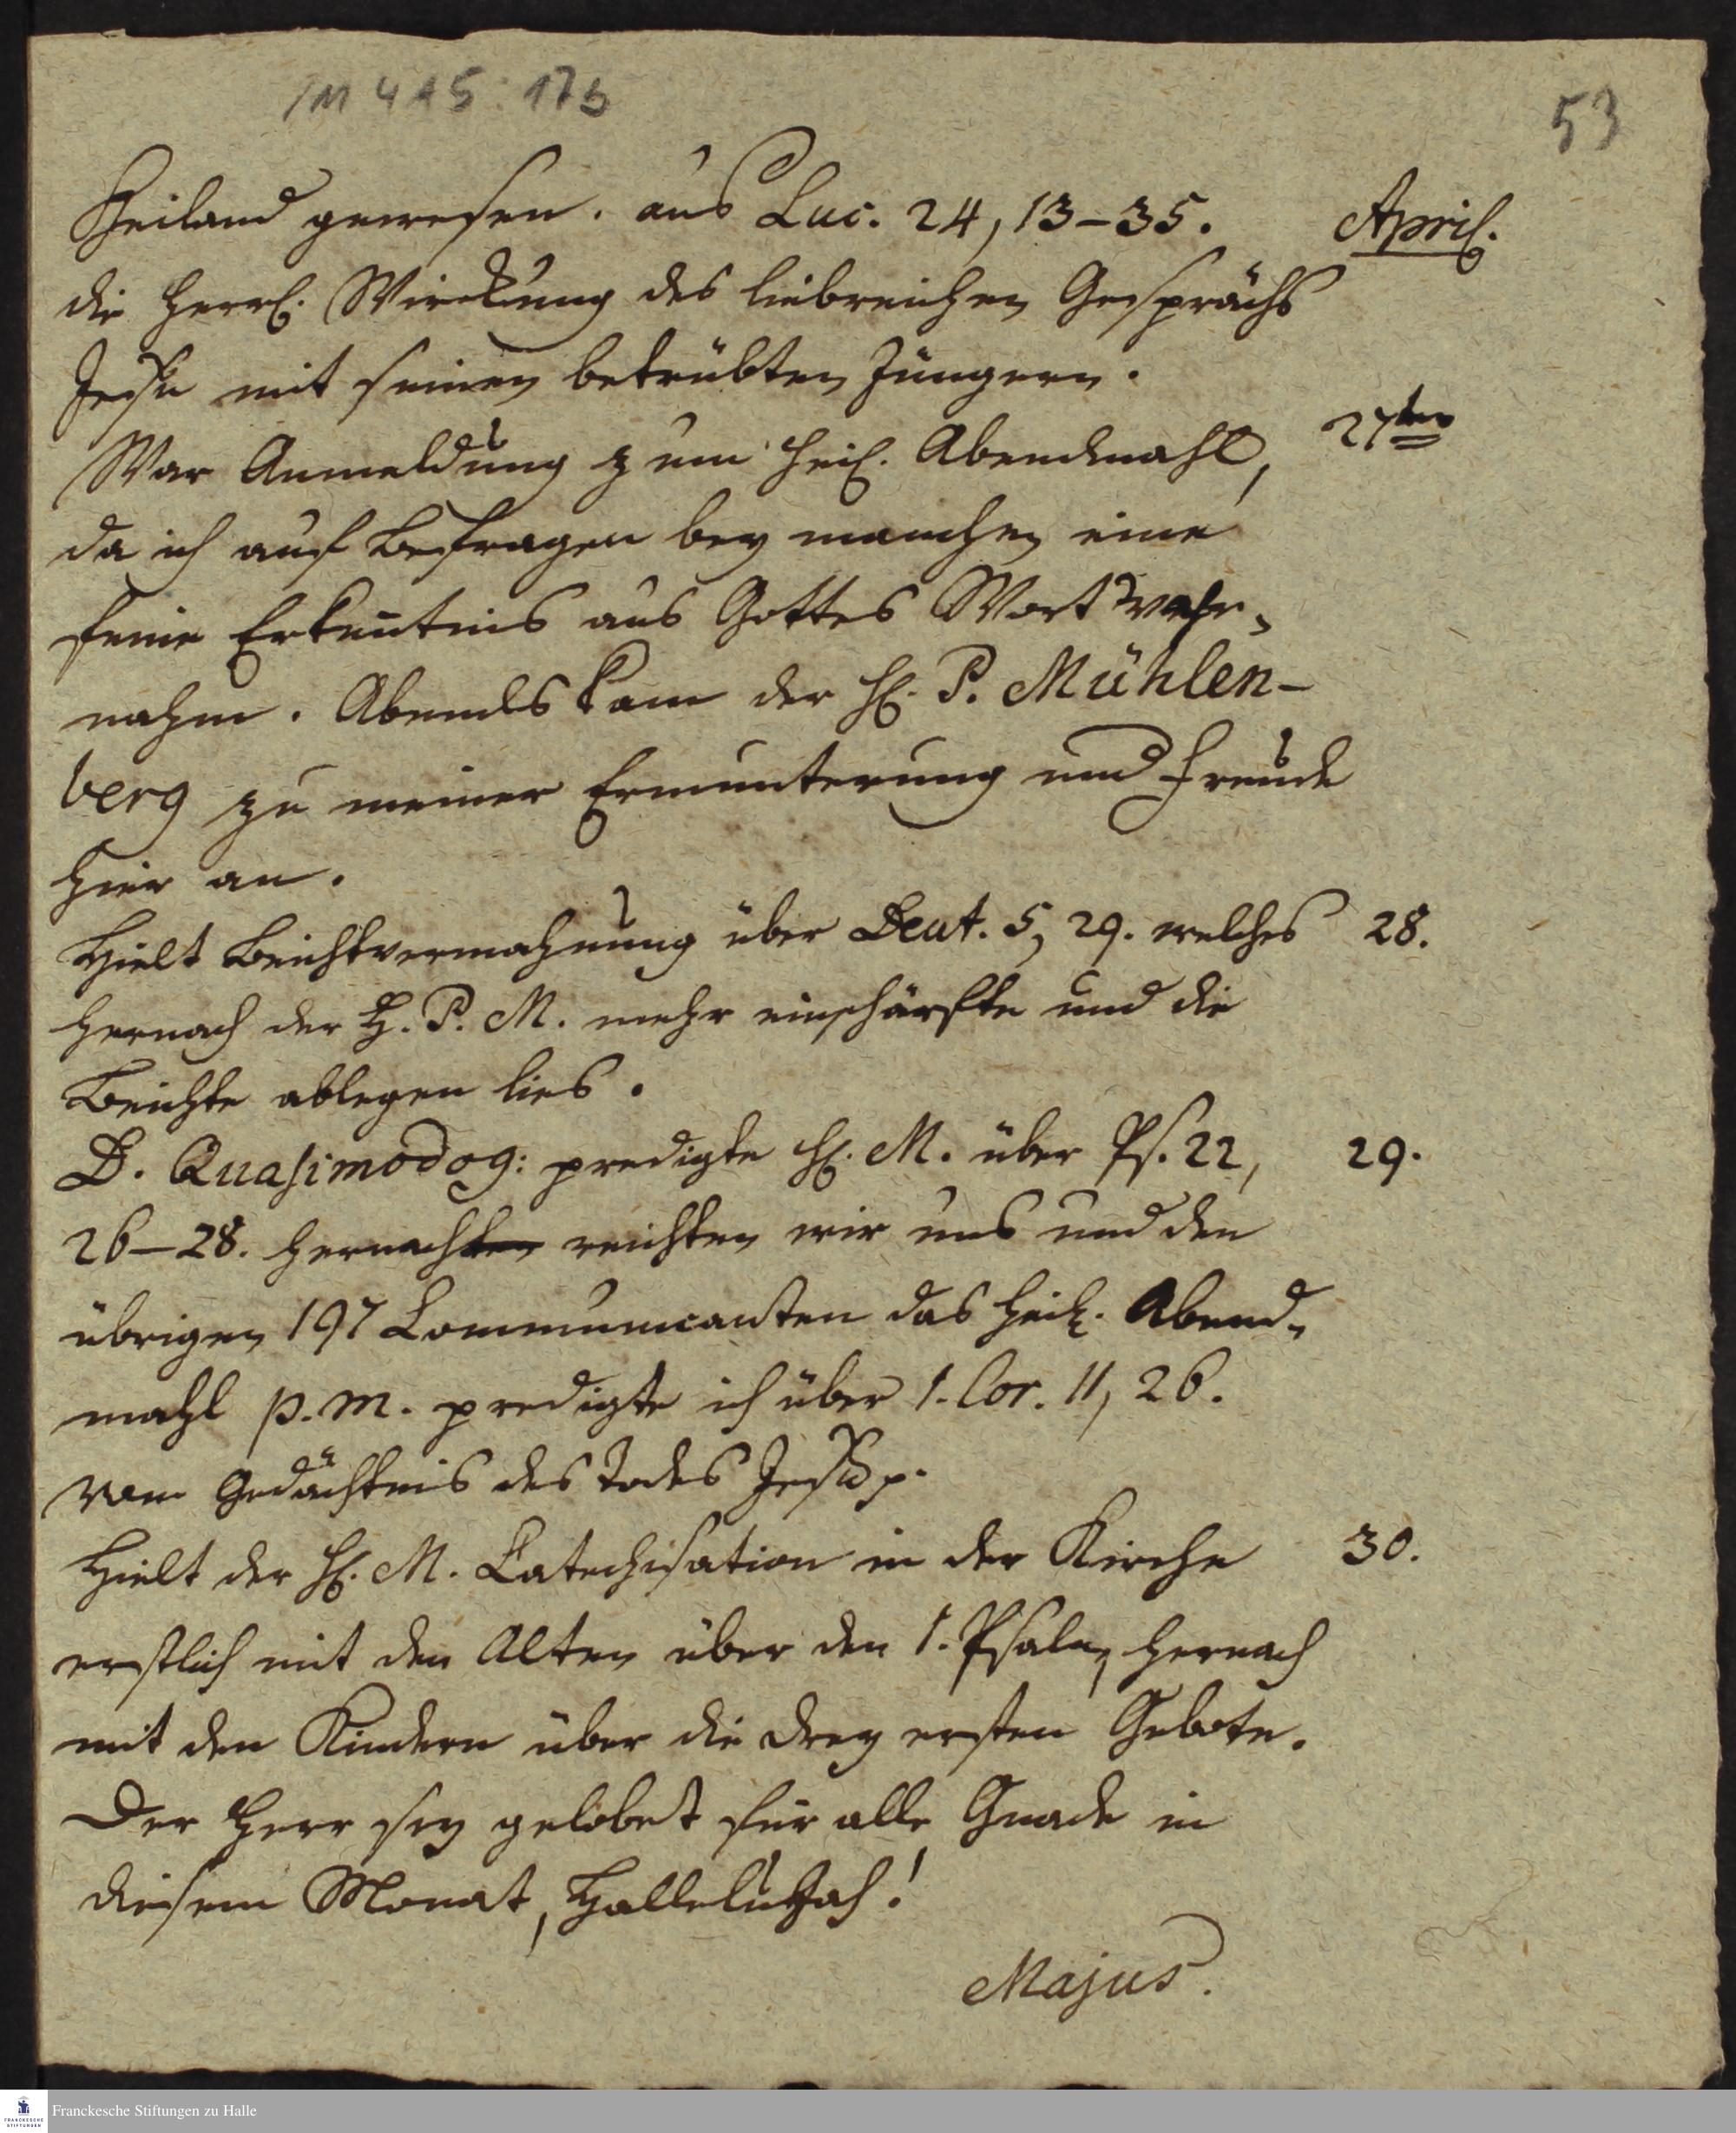 /M 4 A 5 : 17b
53
Heiland gewesen. aus Luc. 24, 13–35.
April.
die herrl. Wirckung des liebreichen Gesprächs
Jesu mit seinen betrübten Jüngern.
War Anmeldung zum heil. Abendmahl,
27ten
da ich auf Befragen bey manchen eine
feine Erkentnis aus Gottes Wort wahr-
nahm. Abends kam der H. P. Mühlen-
berg zu meiner Ermunterung und Freude
hier an.
Hielt Beichtvermahnung über Deut. 5, 29. welches
28.
hernach der H. P. M. mehr einschärfte und die
Beichte ablegen lies.
D. Quasimodog: predigte H. M. über Ps. 22,
29.
26–28. hernachten reichten wir uns und den
übrigen 197 Communicanten das heil. Abend-
mahl p. m. predigte ich über 1. Cor. 11, 26.
vom Gedächtnis des Todes Jesu p.
Hielt der H. M. Catechisation in der Kirche
30.
erstlich mit den Alten über den 1. Psalm, hernach
mit den Kindern über die drey ersten Gebote.
Der Herr sey gelobet für alle Gnade in
diesem Monat, Hallelujah!
Majus.
FRANCKESCHE
STIFTUNGEN
Franckesche Stiftungen zu Halle